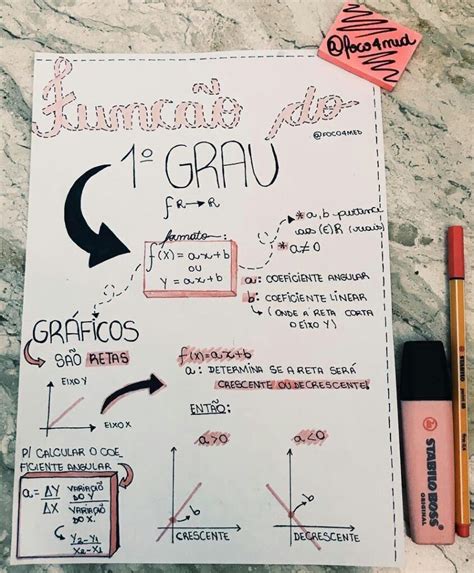 @foco4med
Função do
@FOCO4MED
1º GRAU
f R→R
formato:
f(X) = ax+b
OU
Y = ax+b
* a, b pertence
aos (E)R (reais)
* a≠0
a: COEFICIENTE ANGULAR
b: COEFICIENTE LINEAR
(ONDE A RETA CORTA
O EIXO Y)
GRÁFICOS
SÃO RETAS
EIXO Y
EIXO X
f(x)=ax+b
a: DETERMINA SE A RETA SERÁ
CRESCENTE OU DECRESCENTE.
ENTÃO:
P/ CALCULAR O COE
FICIENTE ANGULAR
a = ΔY VARIAÇÃO DO Y
ΔX VARIAÇÃO DO X.
Y2-Y1
X2-X1
a>0
b
CRESCENTE
a<0
b
DECRESCENTE
STABILO BOSS
ORIGINAL